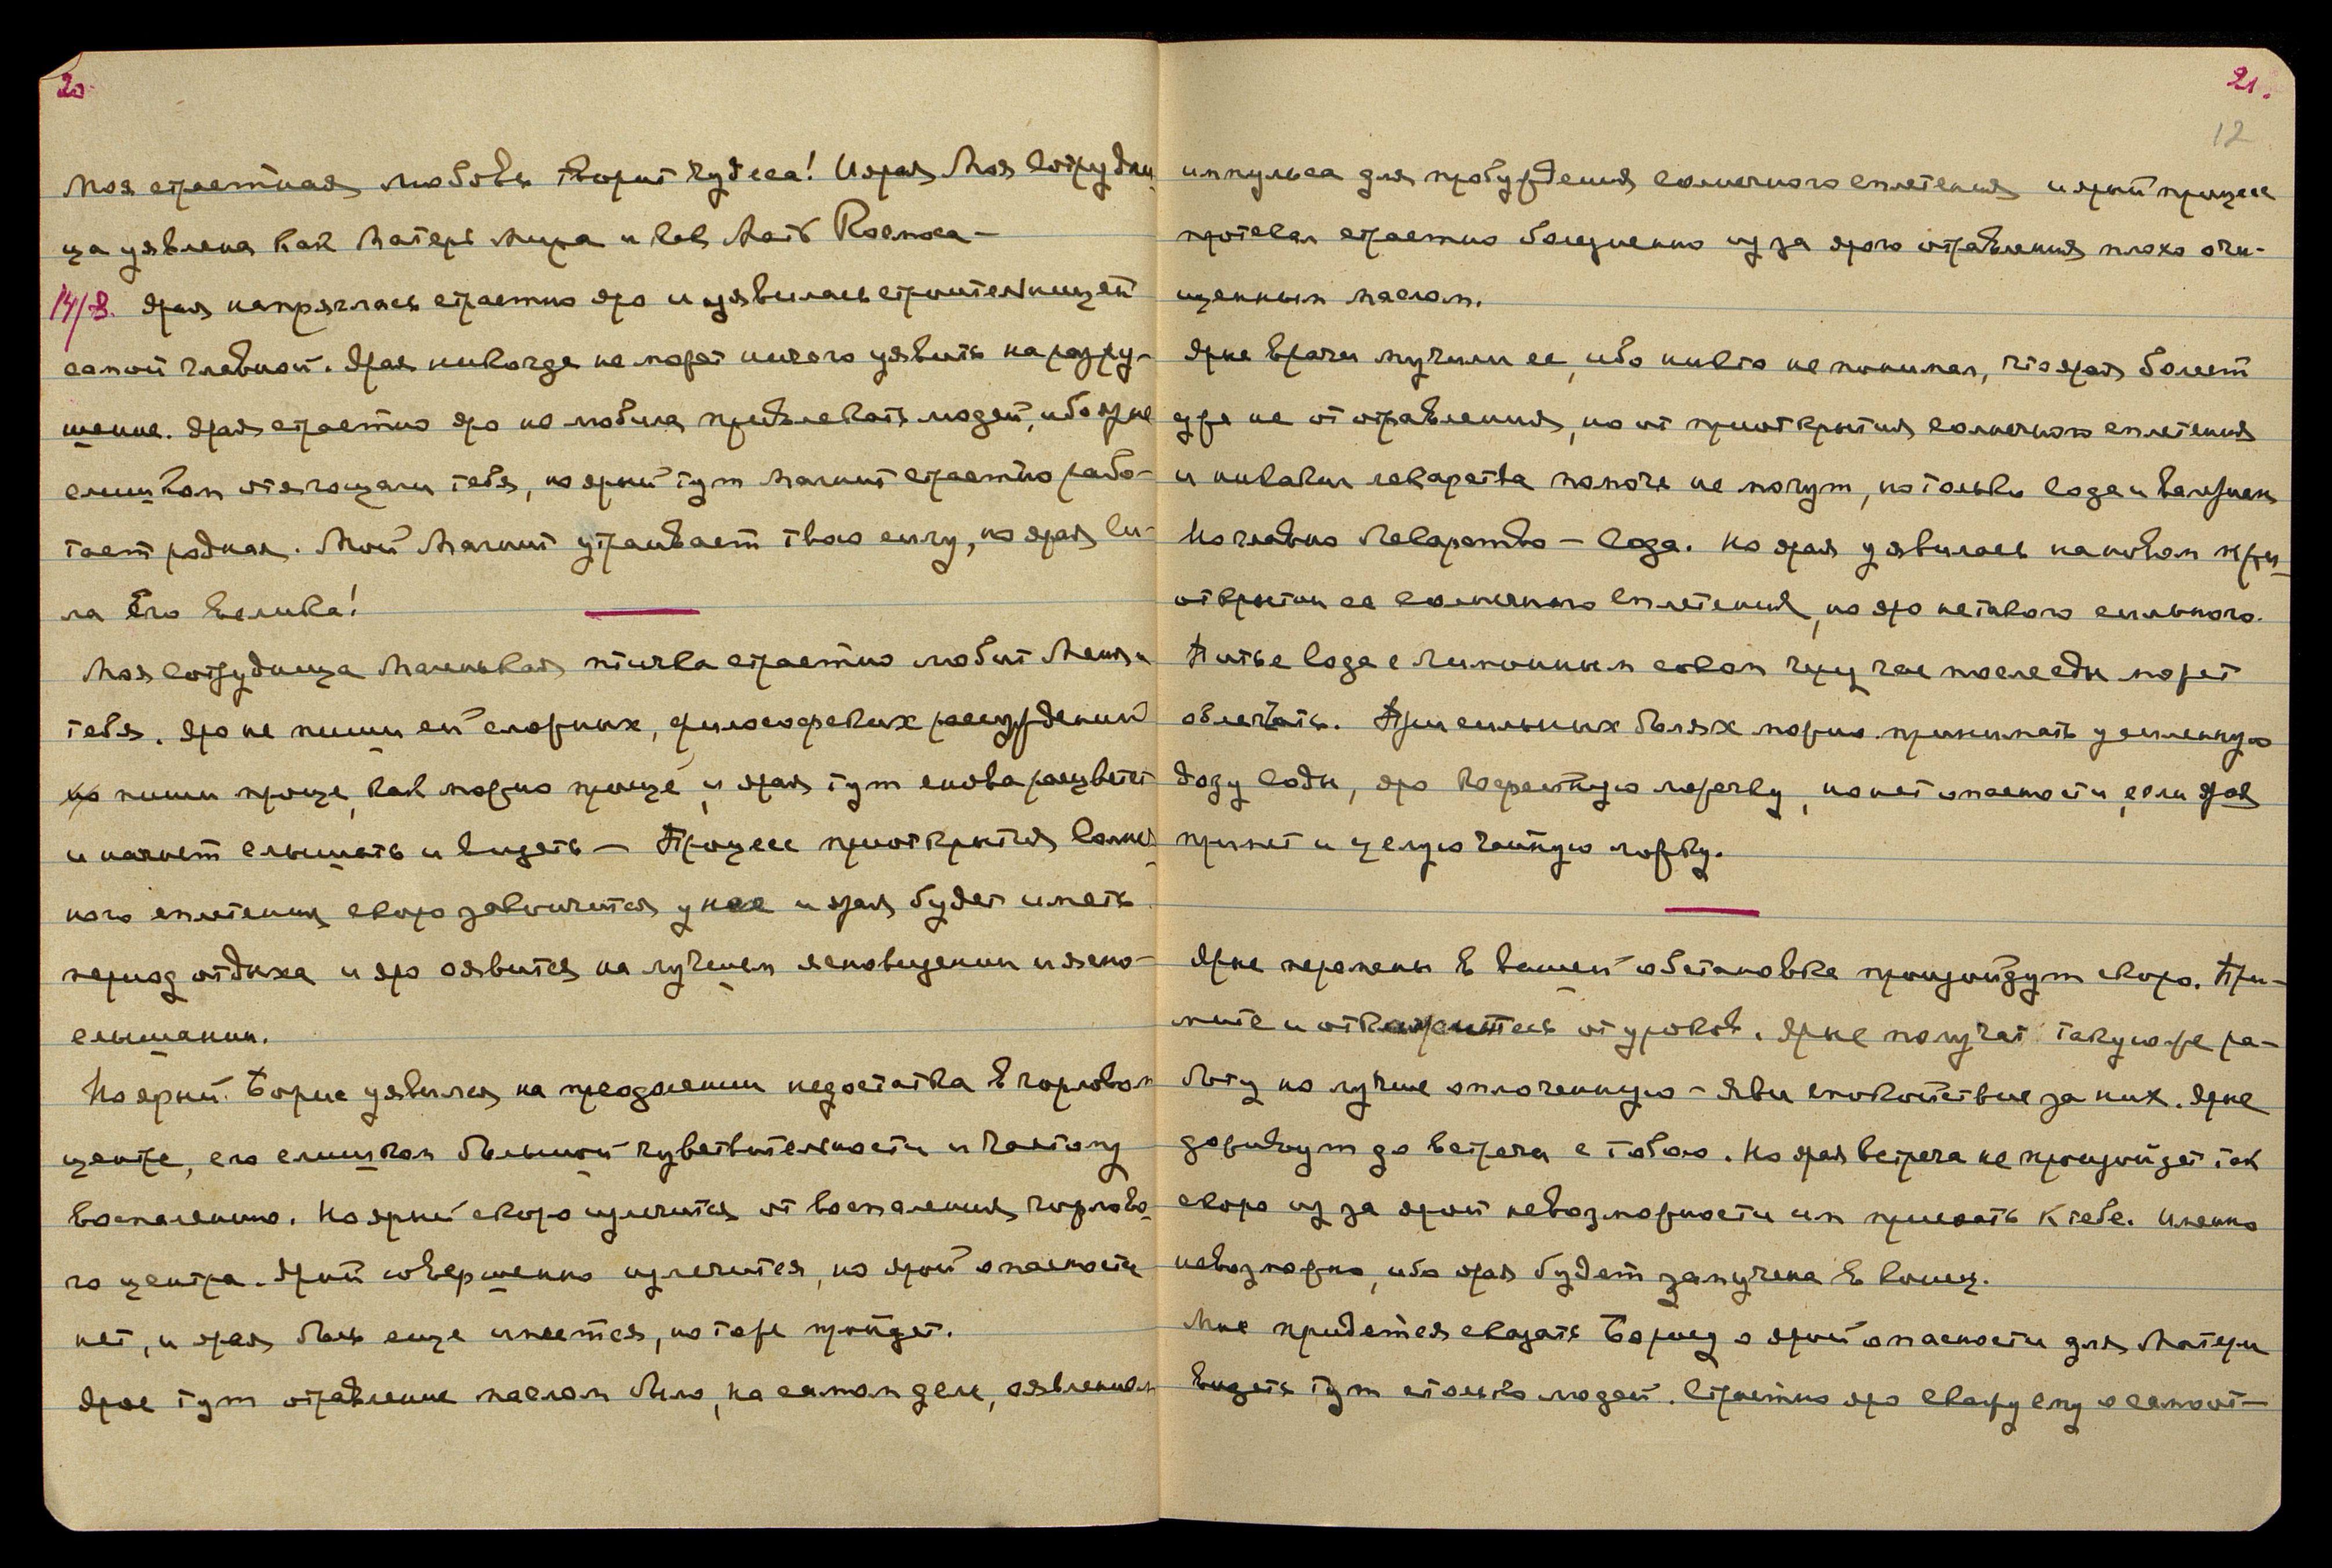 20.
Моя страстная любовь творит чудеса! И ярая Моя Сотрудни-
ца уявлена как Матерь Мира и как Мать Космоса —
14/8. Ярая напряглась страстно яро и уявилась строительницей
самой главной. Ярая никогда не может ничего уявить на разру-
шение. Ярая страстно яро не любила привлекать людей, ибо ярые
слишком отягощали тебя, но ярый тут Магнит страстно рабо-
тает родная. Мой Магнит утраивает твою силу, но ярая Си-
ла Его велика!
Моя Сотрудница Маленькая птичка страстно любит Меня и
тебя. Яро не пиши ей сложных, философских рассуждений
но пиши проще, как можно проще, и ярая тут снова расцветет
и начнет слышать и видеть — Процесс приоткрытия Солнеч-
ного сплетения скоро закончится у нее и ярая будет иметь
период отдыха и яро оявится на лучшем ясновидении и ясно-
слышании.
Но ярый Борис уявился на преодолении недостатка в горловом
центре, его слишком большой чувствительности и частому
воспалению. Но ярый скоро излечится от воспаления горлово-
го центра. Ярый совершенно излечится, но ярой опасности
нет, и ярая боль еще имеется, но тоже пройдет.
Ярое тут отравление маслом было, на самом деле, оявлением
21.
12
импульса для пробуждения солнечного сплетения и ярый процесс
протекал страстно болезненно из за ярого отравления плохо очи-
щенным маслом.
Ярые врачи мучили ее, ибо никто не понимал, что ярая болеет
уже не от отравления, но от приоткрытия солнечного сплетения
и никакие лекарства помочь не могут, но только сода и валериан
Но главное лекарство — Сода. Но ярая уявилась на новом при-
открытии ее солнечного сплетения, но яро не такого сильного.
Питье соды с лимонным соком чрез час после еды может
облегчать. При сильных болях можно принимать усиленную
дозу соды, яро десертную ложечку, но нет опасности, если ярая
примет и целую чайную ложку.
Ярые перемены в вашей обстановке произойдут скоро. При-
мите и откажитесь от уроков. Ярые получат такую же ра-
боту но лучше оплоченную — Яви спокойствие за них. Ярые
доживут до встречи с тобою. Но ярая встреча не произойдет так
скоро из за ярой невозможности им приехать к тебе. Именно
невозможно, ибо ярая будет замучена в конец.
Мне придется сказать Борису о ярой опасности для Матери
видеть тут столько людей. Страстно яро скажу ему о самоот-